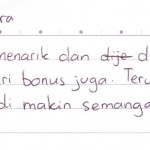 ra
menarik dan dije d
ri bonus juga. Teru
di makin semanga